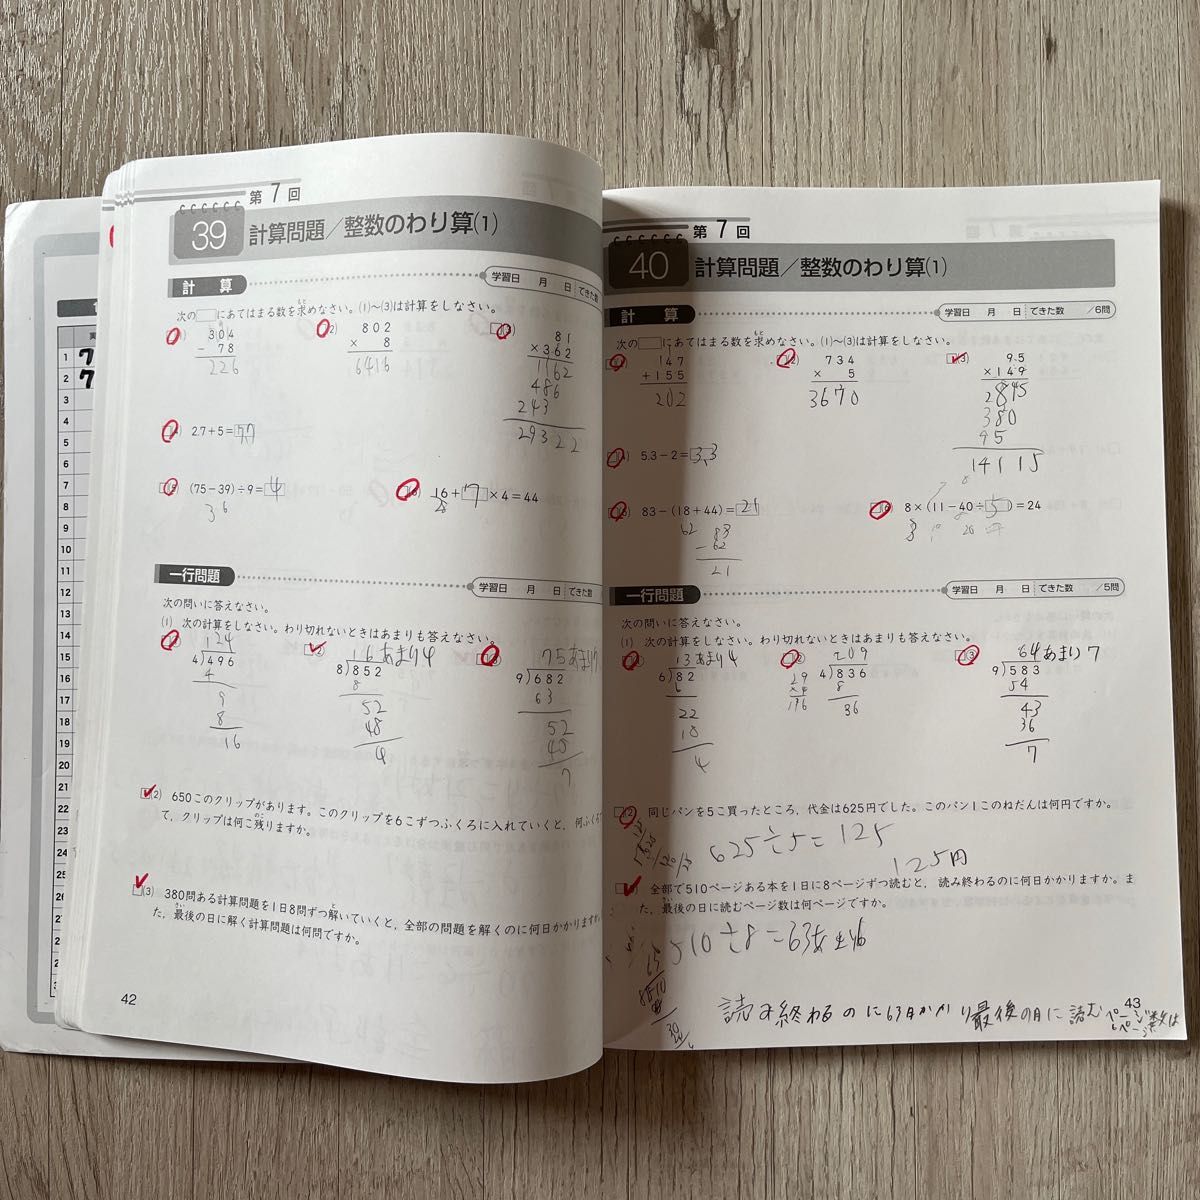 第7回
39 計算問題/整数のわり算(1)
計算
学習日 月 日 できた数
次の□にあてはまる数を求めなさい。(1)〜(3)は計算をしなさい。
304
- 78
226
802
× 8
6416
(3) 81
×362
1162
486
243
29322
2.7+5=7.7
(75-39)÷9=4
36
16+7×4=44
28
一行問題
学習日 月 日 できた数
次の問いに答えなさい。
(1) 次の計算をしなさい。わり切れないときはあまりも答えなさい。
124
4)496
4
9
8
16
② 16あまり4
8)852
8
52
48
4
75あまり7
9)682
63
52
45
7
(2) 650このクリップがあります。このクリップを6こずつふくろに入れていくと,何ふくろ
て,クリップは何こ残りますか。
(3) 380問ある計算問題を1日8問ずつ解いていくと,全部の問題を解くのに何日かかりますか。
た,最後の日に解く計算問題は何問ですか。
42
第7回
40 計算問題/整数のわり算(1)
計算
学習日 月 日 できた数 /6問
次の□にあてはまる数を求めなさい。(1)〜(3)は計算をしなさい。
147
+155
202
734
× 5
3670
95
×149
380
95
14115
5.3-2=3.3
83-(18+44)=21
62
83
-62
21
8×(11-40÷5)=24
一行問題
学習日 月 日 できた数 /5問
次の問いに答えなさい。
(1) 次の計算をしなさい。わり切れないときはあまりも答えなさい。
13あまり4
6)82
6
22
18
4
209
4)836
8
36
③ 64あまり7
9)583
54
43
36
7
(2) 同じパンを5こ買ったところ,代金は625円でした。このパン1このねだんは何円ですか。
625÷5=125
125円
全部で510ページある本を1日に8ページずつ読むと,読み終わるのに何日かかりますか。ま
た,最後の日に読むページ数は何ページですか。
510÷8=63あまり6
読み終わるのに63日かかり最後の日に読むページ数は
6ページ
43